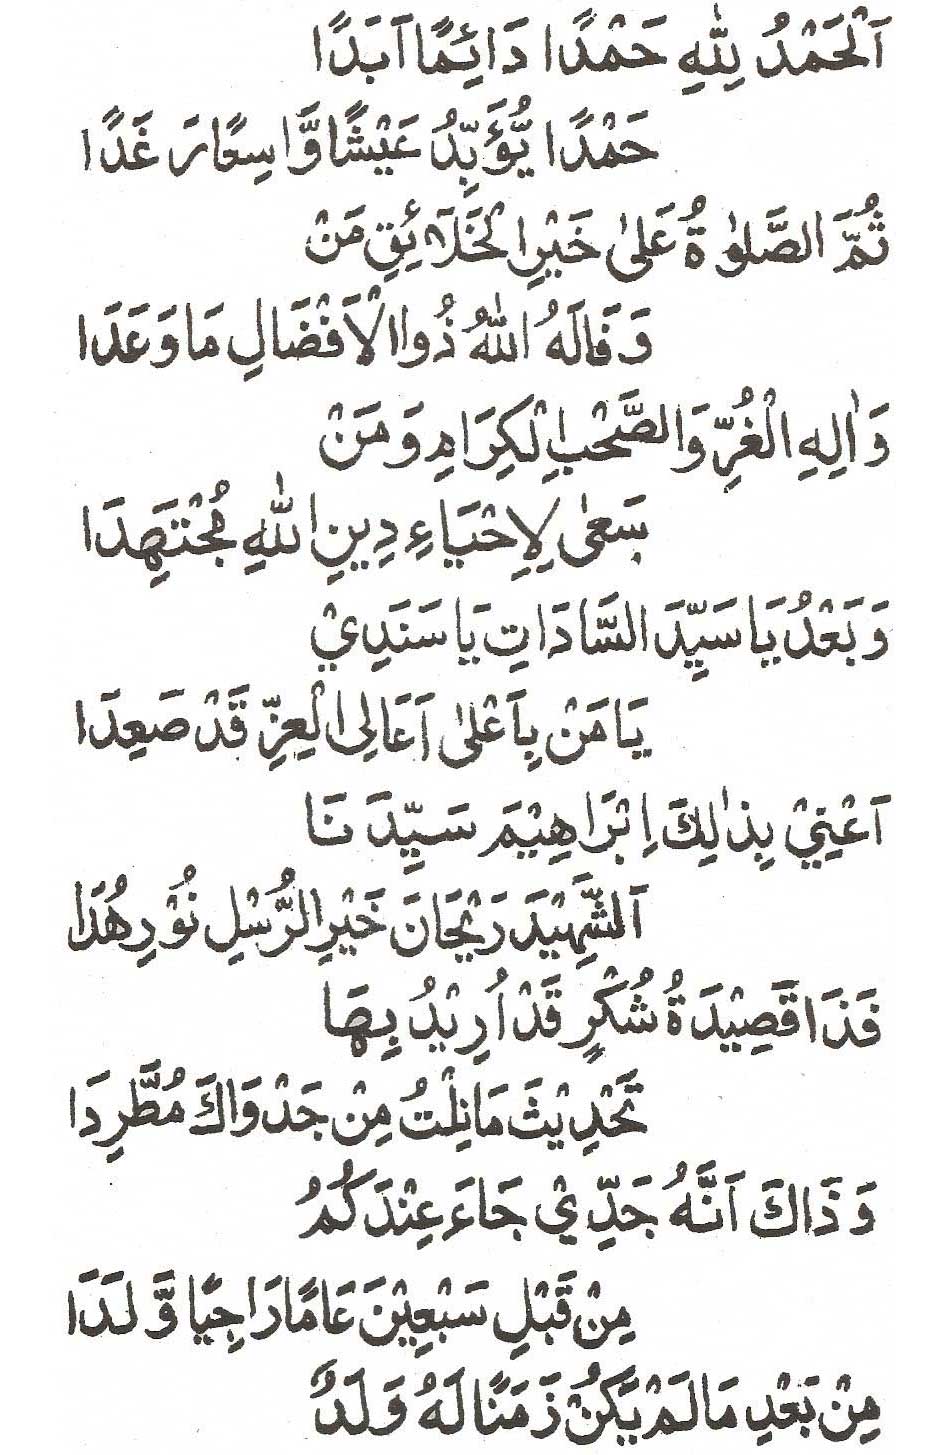 اَلْحَمْدُ لِلّٰهِ حَمْدًا دَائِمًا اَبَدًا
حَمْدًا يُّؤَبِّدُ عَيْشًا وَّاسِعًا رَغَدًا
ثُمَّ الصَّلٰوةُ عَلىٰ خَيْرِ الْخَلَائِقِ مَنْ
وَفَالَهُ اللهُ ذُوا الْاَفْضَالِ مَا وَعَدَا
وَاٰلِهِ الْغُرِّ وَالصَّحْبِ الْكِرَامِ وَمَنْ
سَعىٰ لِاِحْيَاءِ دِينِ اللهِ مُجْتَهِدَا
وَبَعْدُ يَا سَيِّدَ السَّادَاتِ يَا سَنَدِيْ
يَا مَنْ بِاَعْلىٰ اَعَالِى الْعِزِّ قَدْ صَعِدَا
اَعْنِيْ بِذٰلِكَ اِبْرَاهِيْمَ سَيِّدَنَا
اَلشَّهِيْدَ رَيْحَانَ خَيْرِ الرُّسْلِ نُوْرِ هُدَا
فَذَا قَصِيْدَةُ شُكْرٍ قَدْ اُرِيْدُ بِهَا
تَحْدِيْثَ مَا نِلْتُ مِنْ جَدْوَاكَ مُطَّرِدَا
وَذَاكَ اَنَّهُ جَدِّيْ جَاءَ عِنْدَكُمُ
مِنْ قَبْلِ سَبْعِيْنَ عَامًا رَاجِيًا وَّلَدَا
مِنْ بَعْدِ مَا لَمْ يَكُنْ زَمَنًا لَهُ وَلَدٌ